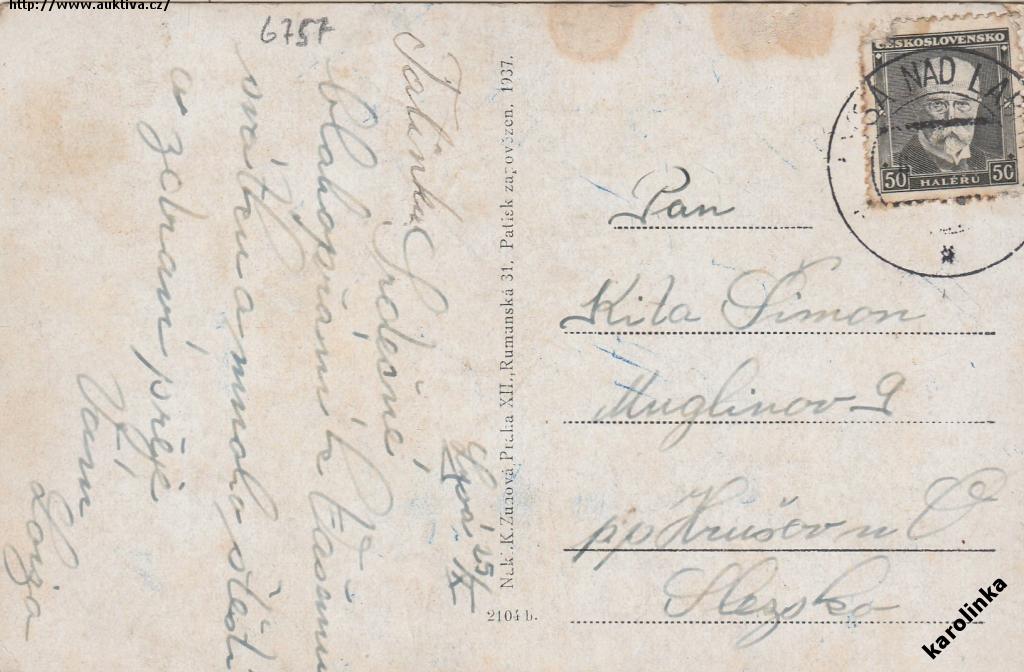 http://www.auktiva.cz/
6757
Lysá 25/IX
Tatínku! Srdečné
blahopřání k Vašemu
svátku a mnoho štěstí
a zdraví přeje
Vám
ČESKOSLOVENSKO
50 HALÉŘŮ 50
NAD LA
Pan
Kita Šimon
Muglinov 9
pp Hrušov n O
Slezsko
Nakl. K. Zunová, Praha XII., Rumunská 31. Patisk zapovězen. 1937.
2104 b.
karolinka